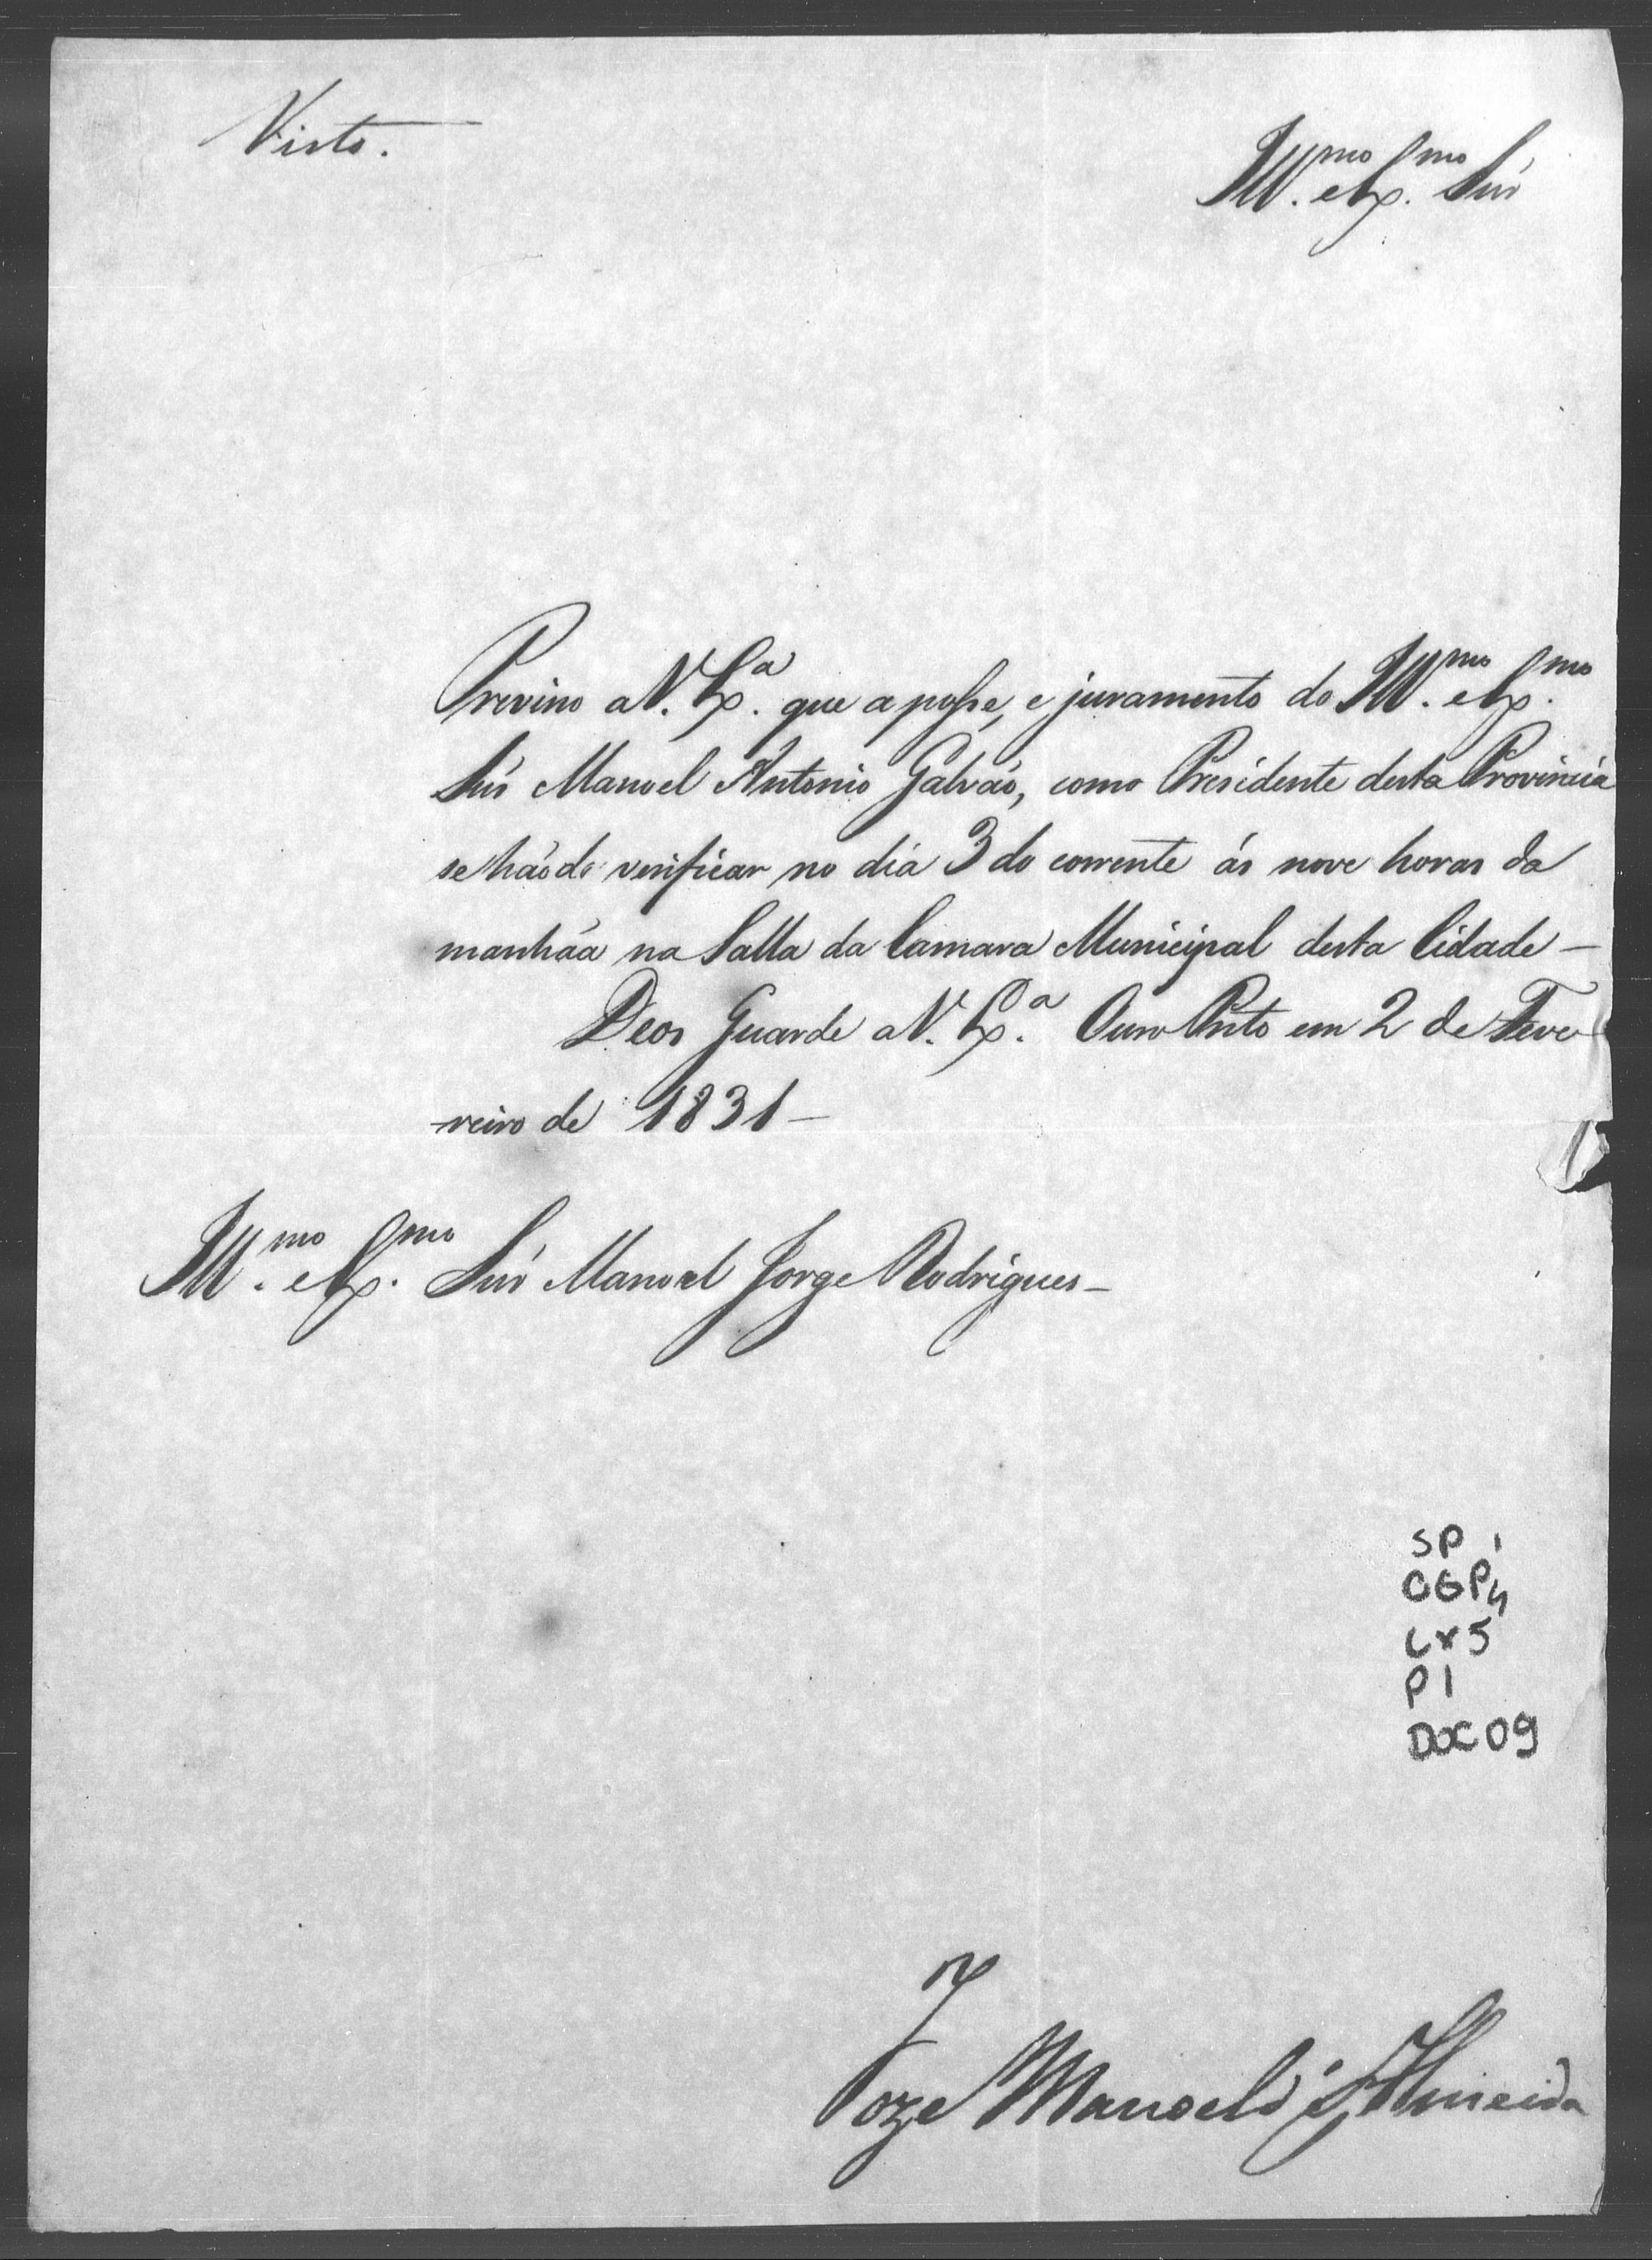 Visto.
Ill.mo e Ex.mo Snr
Previno a V. Ex.a que a posse, e juramento do Ill.mo e Ex.mo
Snr Manoel Antonio Galvão, como Presidente desta Provincia
se hão de verificar no dia 3 do corrente ás nove horas da
manhãa na Salla da Camara Municipal desta Cidade —
Deos Guarde a V. Ex.a Ouro Preto em 2 de Feve
reiro de 1831 —
Ill.mo e Ex.mo Snr Manoel Jorge Rodrigues —
SP 1
CGP4
Cx5
P1
DOC 09
Joze Manoel d'Almeida